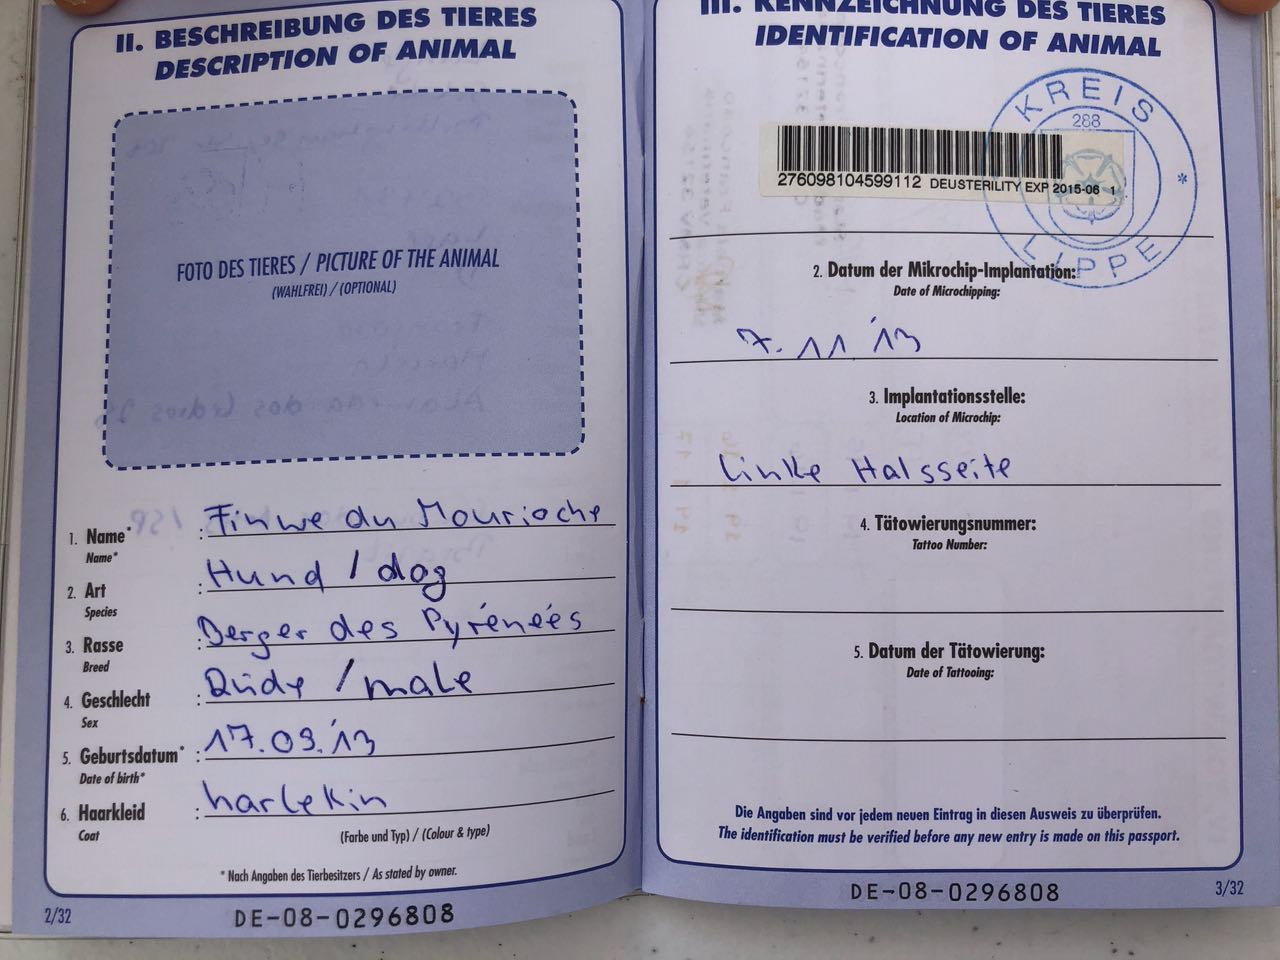 II. BESCHREIBUNG DES TIERES
DESCRIPTION OF ANIMAL
FOTO DES TIERES / PICTURE OF THE ANIMAL
(WAHLFREI) / (OPTIONAL)
1. Name* : Finwe du Mourioche
Name*
2. Art : Hund / dog
Species
3. Rasse : Berger des Pyrénéés
Breed
4. Geschlecht : Rüde / male
Sex
5. Geburtsdatum* : 17.09.'13
Date of birth*
6. Haarkleid : harlekin
Coat
(Farbe und Typ) / (Colour & type)
* Nach Angaben des Tierbesitzers / As stated by owner.
2/32
DE-08-0296808
III. KENNZEICHNUNG DES TIERES
IDENTIFICATION OF ANIMAL
KREIS
288
LIPPE
*
276098104599112 DEUSTERILITY EXP 2015-06 1
2. Datum der Mikrochip-Implantation:
Date of Microchipping:
7. 11 '13
3. Implantationsstelle:
Location of Microchip:
linke Halsseite
4. Tätowierungsnummer:
Tattoo Number:
5. Datum der Tätowierung:
Date of Tattooing:
Die Angaben sind vor jedem neuen Eintrag in diesen Ausweis zu überprüfen.
The identification must be verified before any new entry is made on this passport.
DE-08-0296808
3/32